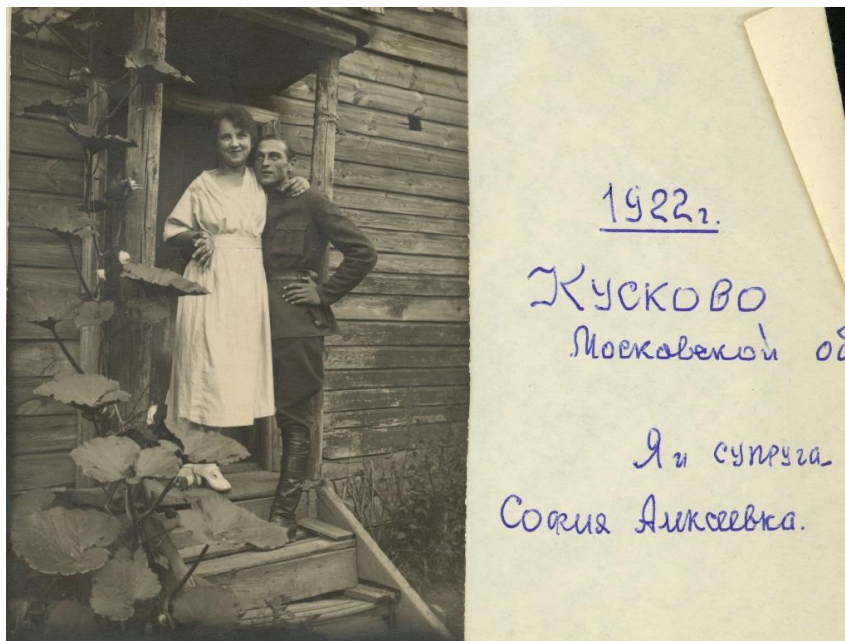 1922г.
Кусково
Московской об
Я и супруга
София Алексеевна.